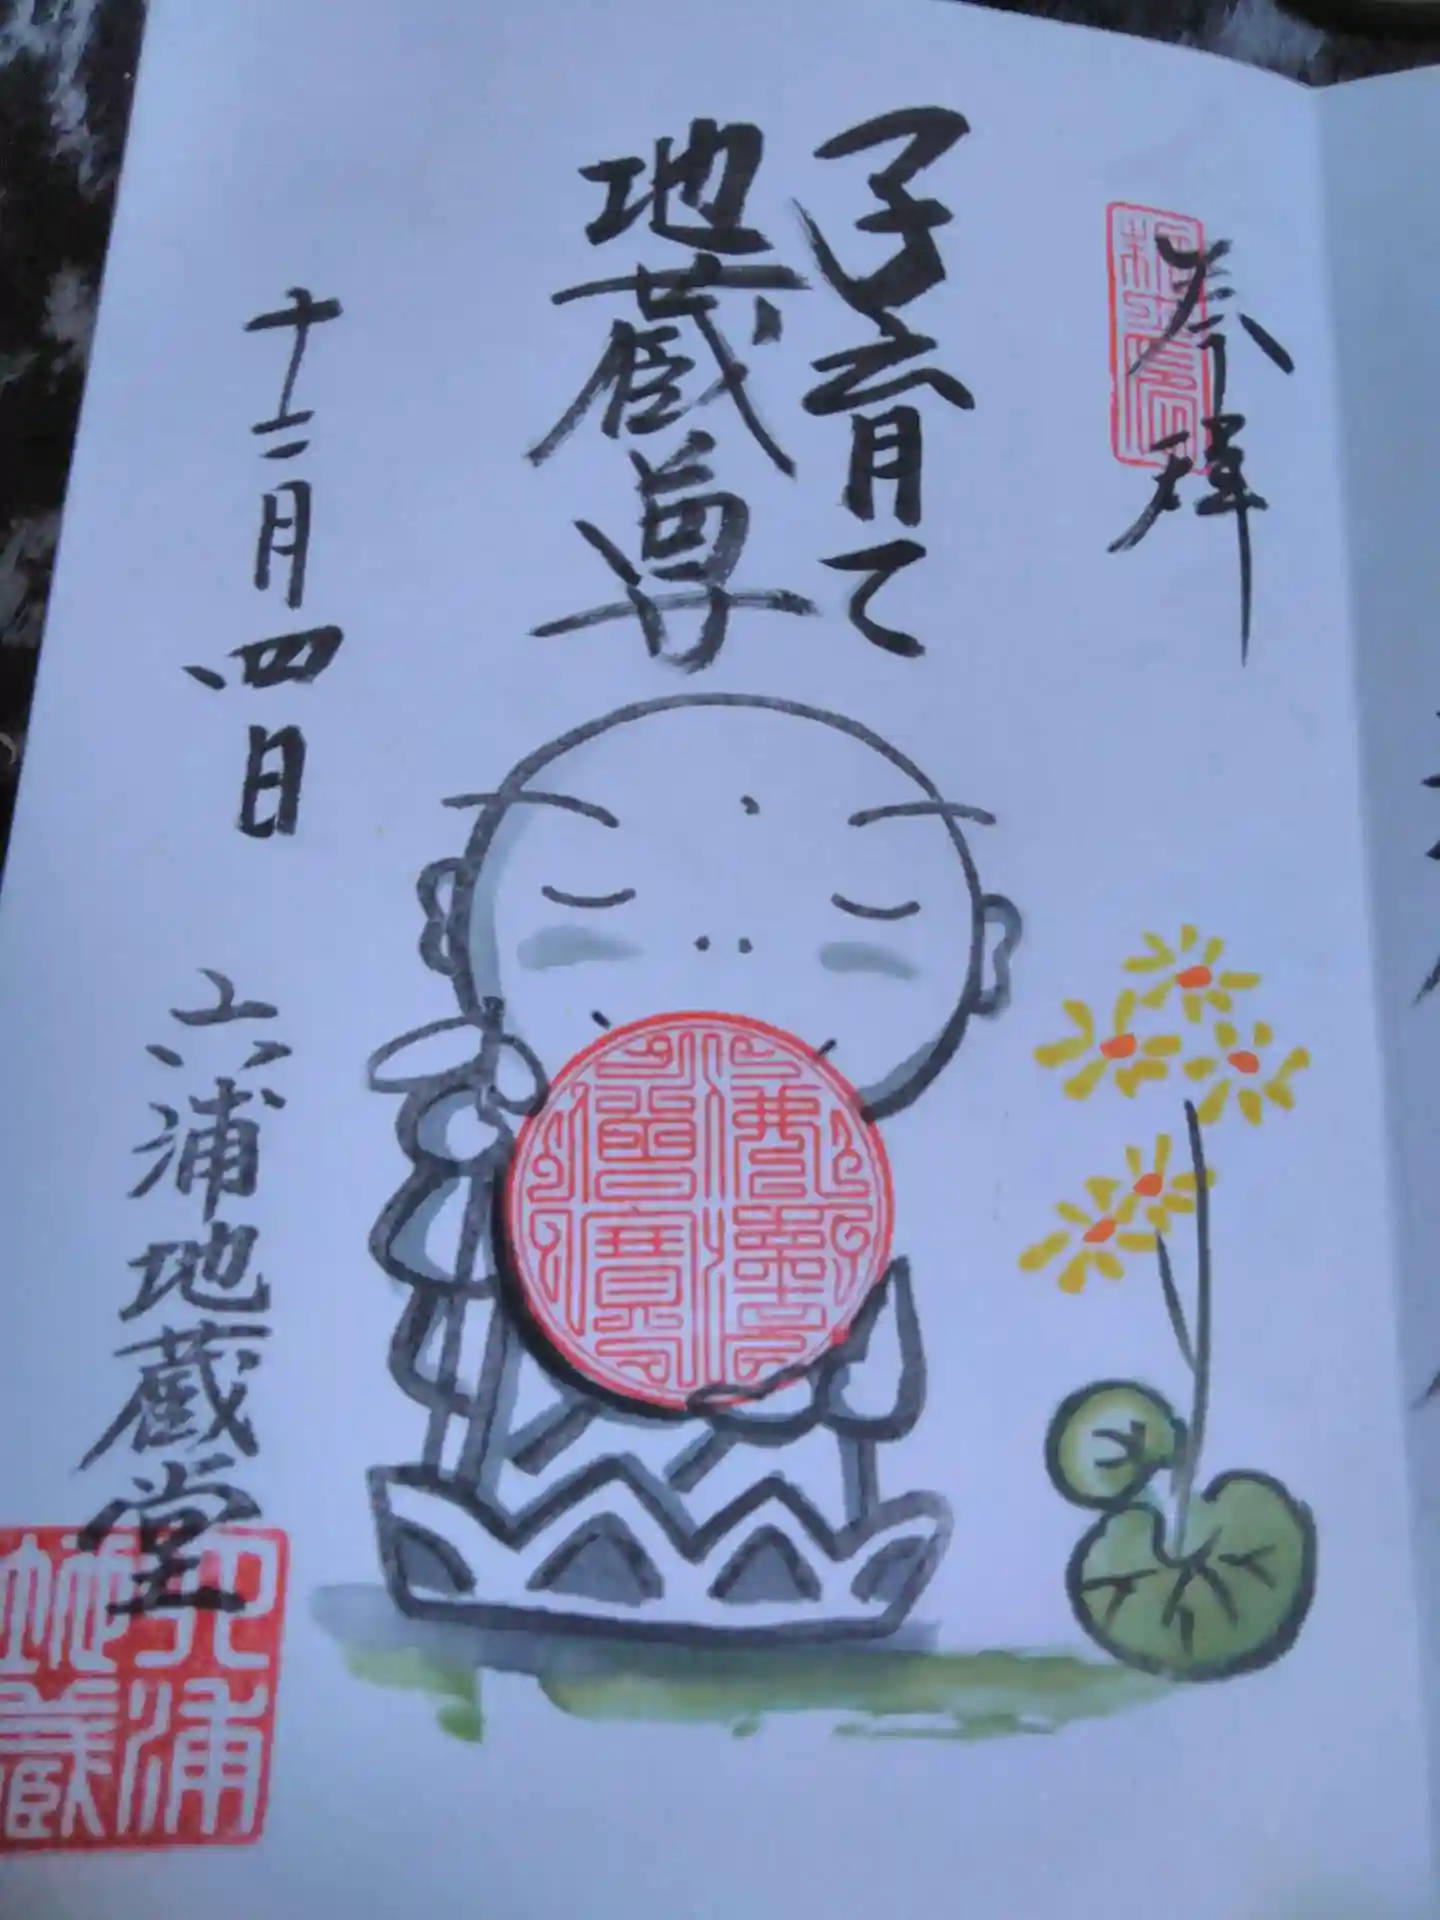 奉拝
子育て
地蔵尊
十二月四日
六浦地蔵堂
佛法僧寶
六浦地蔵